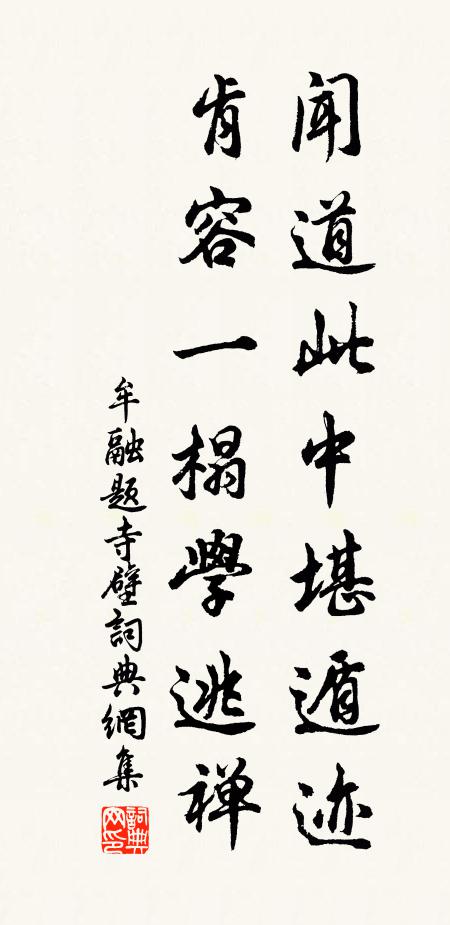 闻道此中堪遁迹
肯容一榻學逃禅
牟融题寺壁詞典網集
詞典网印